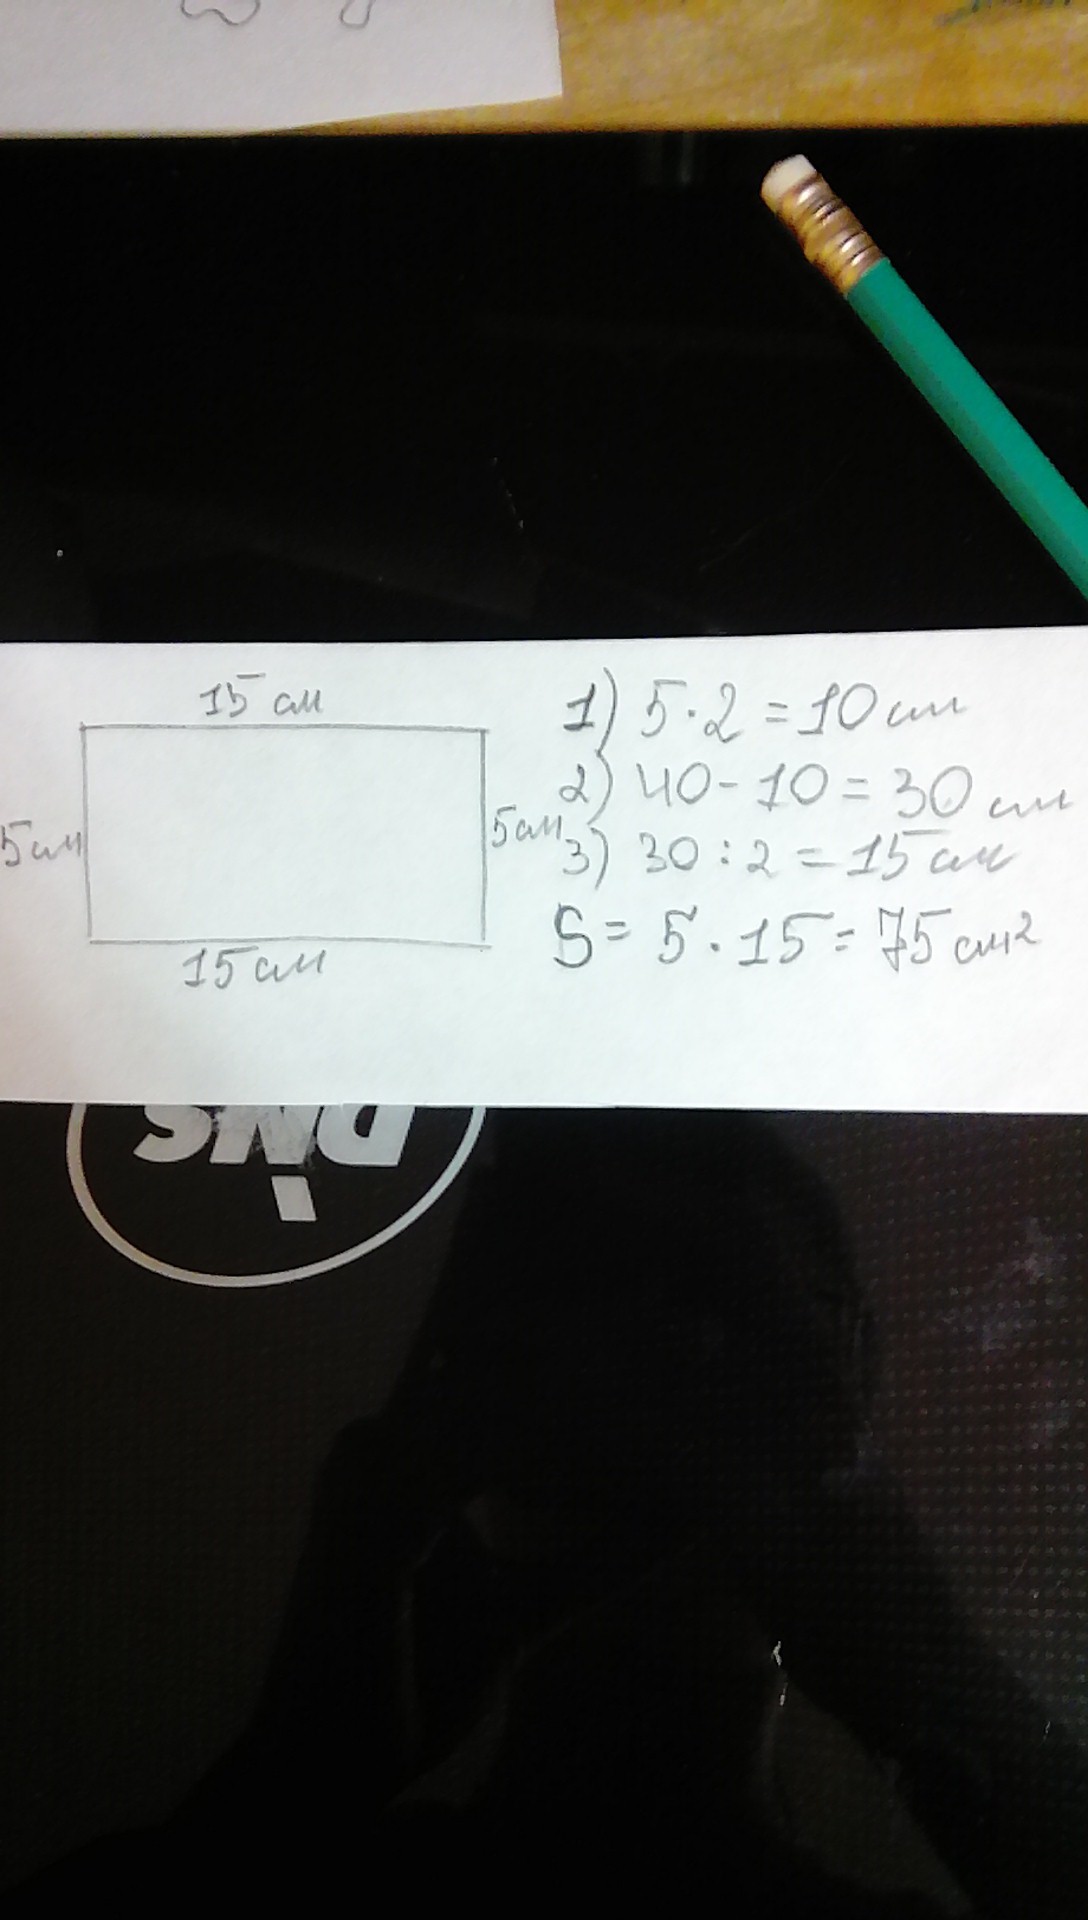 15 см
5см
5см
15 см
1) 5·2 = 10 см
2) 40 - 10 = 30 см
3) 30 : 2 = 15 см
S = 5 · 15 = 75 см²